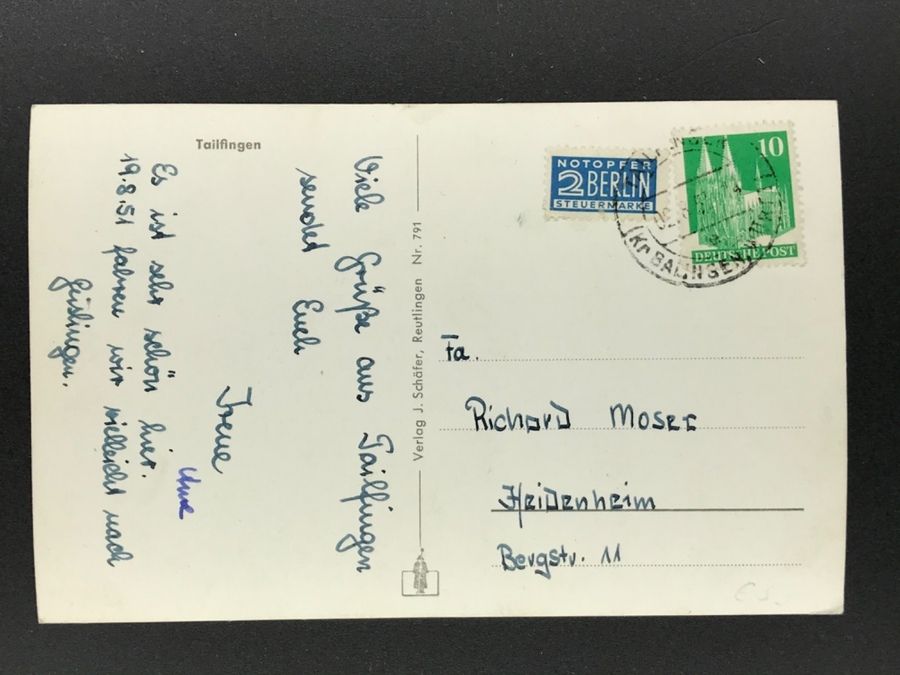 Tailfingen
Viele Grüße aus Tailfingen
sendet Euch
Irene
Es ist sehr schön hier.
19.8.51 fahren wir vielleicht nach
Geislingen.
Verlag J. Schäfer, Reutlingen Nr. 791
NOTOPFER
2 BERLIN
STEUERMARKE
10
DEUTSCHE POST
(Kr. BALINGEN
Fa.
Richard Moser
Heidenheim
Bergstr. 11